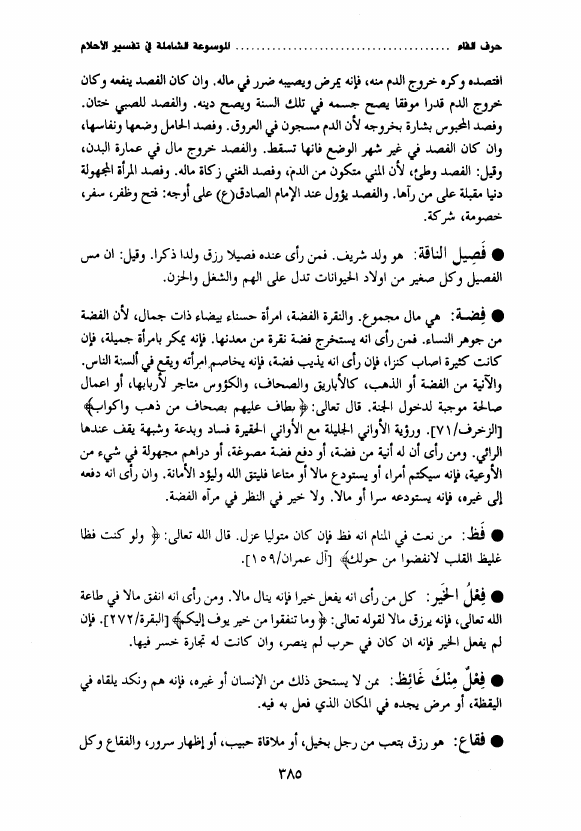 حرف الفاء ........................................ الموسوعة الشاملة في تفسير الأحلام
افتصده وكره خروج الدم منه، فإنه يمرض ويصيبه ضرر في ماله. وان كان الفصد ينفعه وكان
خروج الدم قدرا موفقا يصح جسمه في تلك السنة ويصح دينه. والفصد للصبي ختان.
وفصد المحبوس بشارة بخروجه لأن الدم مسجون في العروق. وفصد الحامل وضعها ونفاسها،
وان كان الفصد في غير شهر الوضع فانها تسقط. والفصد خروج مال في عمارة البدن،
وقيل: الفصد وطئ، لأن المني متكون من الدم، وفصد الغني زكاة ماله. وفصد المرأة المجهولة
دنيا مقبلة على من رآها. والفصد يؤول عند الإمام الصادق(ع) على أوجه: فتح وظفر، سفر،
خصومة، شركة.
● فَصِيل الناقة: هو ولد شريف. فمن رأى عنده فصيلا رزق ولدا ذكرا. وقيل: ان مس
الفصيل وكل صغير من اولاد الحيوانات تدل على الهم والشغل والحزن.
● فِضة: هي مال مجموع. والنقرة الفضة، امرأة حسناء بيضاء ذات جمال، لأن الفضة
من جوهر النساء. فمن رأى انه يستخرج فضة نقرة من معدنها. فإنه يمكر بامرأة جميلة، فإن
كانت كثيرة اصاب كنزا، فإن رأى انه يذيب فضة، فإنه يخاصم امرأته ويقع في ألسنة الناس.
والآنية من الفضة أو الذهب، كالأباريق والصحاف، والكؤوس متاجر لأربابها، أو اعمال
صالحة موجبة لدخول الجنة. قال تعالى: ﴿يطاف عليهم بصحاف من ذهب واكواب﴾
[الزخرف/٧١]. ورؤية الأواني الجليلة مع الأواني الحقيرة فساد وبدعة وشبهة يقف عندها
الرائي. ومن رأى أن له أنية من فضة، أو دفع فضة مصوغة، أو دراهم مجهولة في شيء من
الأوعية، فإنه سيكتم أمرا، أو يستودع مالا أو متاعا فليتق الله وليؤد الأمانة. وان رأى انه دفعه
إلى غيره، فإنه يستودعه سرا أو مالا. ولا خير في النظر في مرآه الفضة.
● فَظ: من نعت في المنام انه فظ فإن كان متوليا عزل. قال الله تعالى: ﴿ ولو كنت فظا
غليظ القلب لانفضوا من حولك﴾ [آل عمران/١٥٩].
● فِعْلُ الخَير: كل من رأى انه يفعل خيرا فإنه ينال مالا. ومن رأى انه انفق مالا في طاعة
الله تعالى، فإنه يرزق مالا لقوله تعالى: ﴿ وما تنفقوا من خير يوف إليكم﴾ [البقرة/٢٧٢]. فإن
لم يفعل الخير فإنه ان كان في حرب لم ينصر، وان كانت له تجارة خسر فيها.
● فِعْلٌ مِنْكَ غَائِظ: ممن لا يستحق ذلك من الإنسان أو غيره، فإنه هم ونكد يلقاه في
اليقظة، أو مرض يجده في المكان الذي فعل به فيه.
● فقاع: هو رزق بتعب من رجل بخيل، أو ملاقاة حبيب، أو إظهار سرور، والفقاع وكل
٣٨٥